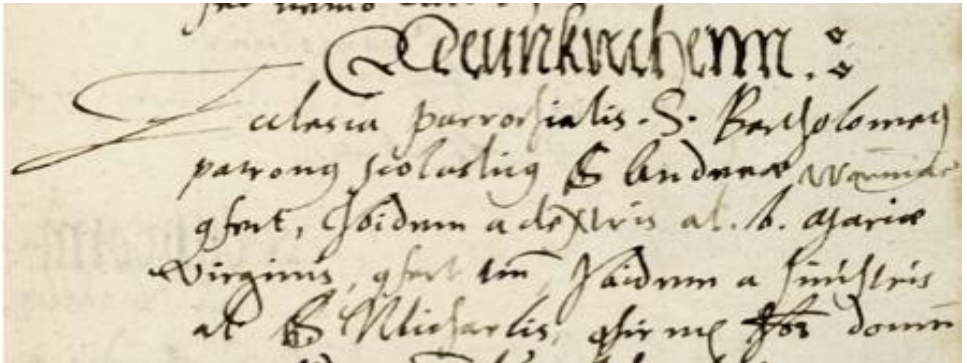 Neunkirchenn.
Ecclesia parrochialis. S. Bartholomei
patronus scolasticus S Andreae Wormac
confert, Ibidem a dextris al. b. Mariae
Virginis, confert Ibidem a sinistris
al S Michaelis, domin